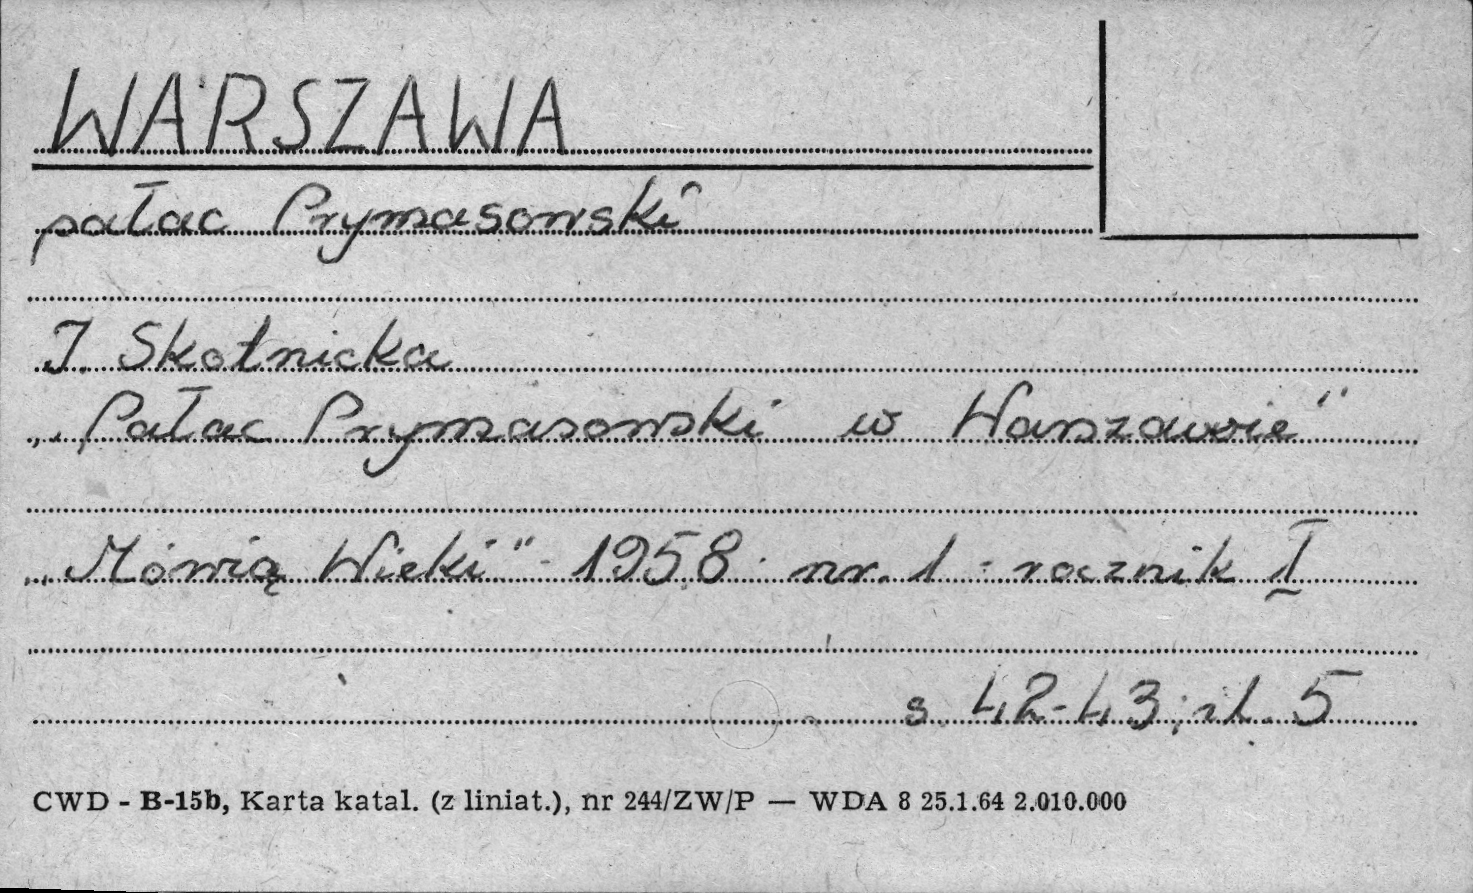 WARSZAWA
pałac Prymasowski
J. Skotnicka
„Pałac Prymasowski w Warszawie"
„Mówią Wieki" - 1958 - nr. 1 - rocznik I
s. 42-43, il. 5
CWD - B-15b, Karta katal. (z liniat.), nr 244/ZW/P — WDA 8 25.1.64 2.010.000